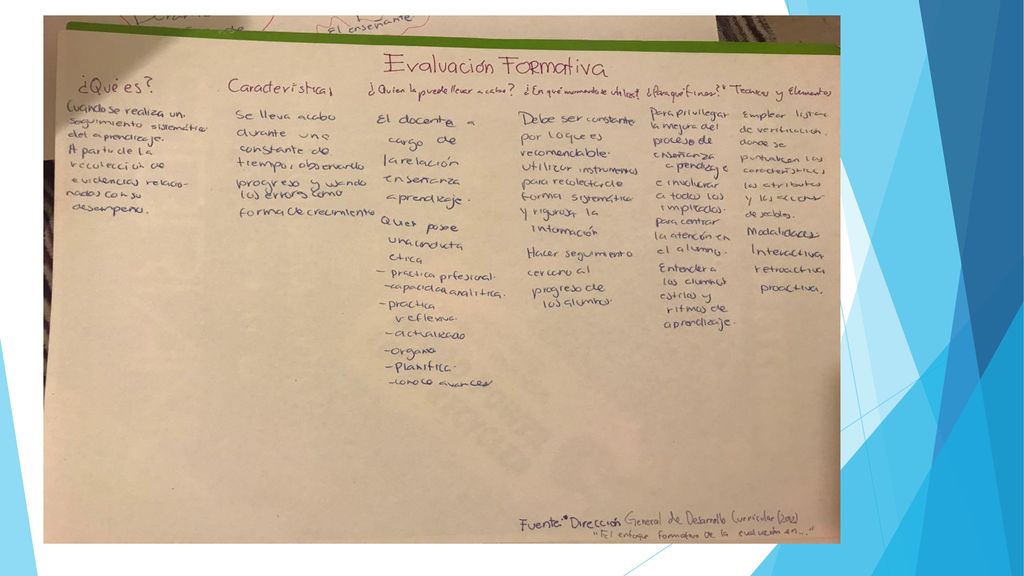 El enseñante
Evaluación Formativa
¿Qué es?
Cuando se realiza un
seguimiento sistemático
del aprendizaje.
A partir de la
recolección de
evidencias relacio-
nados con su
desempeño.
Característica,
Se lleva acabo
durante una
constante de
tiempo, observando
progreso y usando
los errores como
forma de crecimiento
¿Quien la puede llevar a cabo?
El docente a
cargo de
la relación
enseñanza
aprendizaje.
Quien posee
una conducta
etica
- practica prfesional.
- capacidad analitica.
- practica
reflexiva.
- actualizado
- organa
- planifica.
- conoce avances
¿En qué momento se utiliza?
Debe ser constante
por lo que es
recomendable
utilizar instrumentos
para recolectar de
forma sistemática
y rigurosa la
información
Hacer seguimiento
cercano al
progreso de
los alumnos
¿Para qué fines?
Para privilegiar
la mejora del
proceso de
enseñanza
aprendizaje
e involucrar
a todos los
implicados.
para centrar
la atención en
el alumno.
Entender a
los alumnos
estilos y
ritmos de
aprendizaje.
Tecnicas y Elementos
Emplear listas
de verificación.
donde se
puntualicen las
características
los atributos
y las acciones
deseables.
Modalidades:
Interactiva
retroactiva
proactiva.
Fuente: Dirección General de Desarrollo Curricular (2012)
"El enfoque formativo de la evaluación en..."